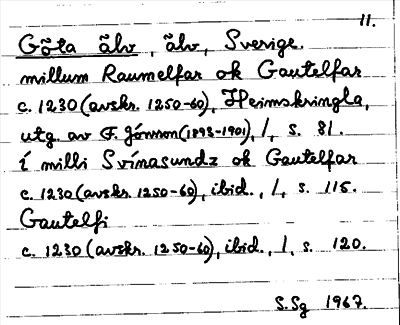 11.
Göta älv, älv, Sverige.
millum Raumelfar ok Gautelfar
c. 1230 (avskr. 1250-60), Heimskringla,
utg. av F. Jónsson (1893-1901), 1, s. 81.
í milli Svínasundz ok Gautelfar
c. 1230 (avskr. 1250-60), ibid., 1, s. 115.
Gautelfi
c. 1230 (avskr. 1250-60), ibid., 1, s. 120.
S.Sg 1967.